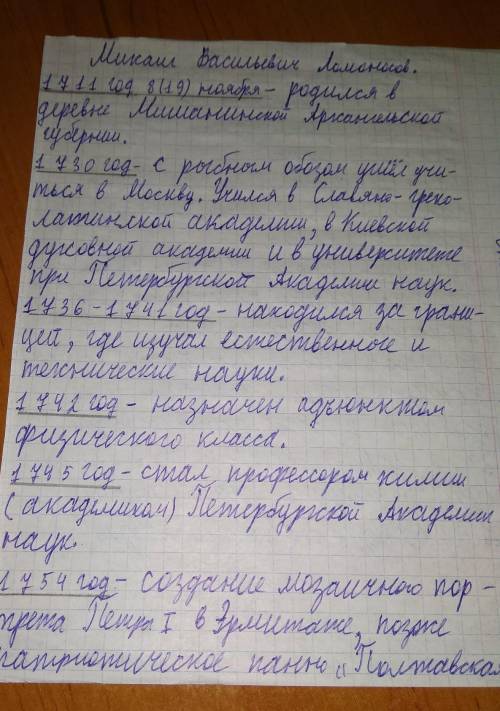 Михаил Васильевич Ломоносов.
1711 год 8(19) ноября - родился в
деревне Мишанинской Архангельской
губернии.
1730 год - с рыбным обозом ушёл учи-
ться в Москву. Учился в Славяно-греко-
латинской академии, в Киевской
духовной академии и в университете
при Петербургской Академии наук.
1736-1741 год - находился за грани-
цей, где изучал естественные и
технические науки.
1742 год - назначен адъюнктом
физического класса.
1745 год - стал профессором химии
(академиком) Петербургской Академии
наук.
1754 год - создание мозаичного пор-
трета Петра I в Эрмитаже, позже
патриотическое панно „Полтавская